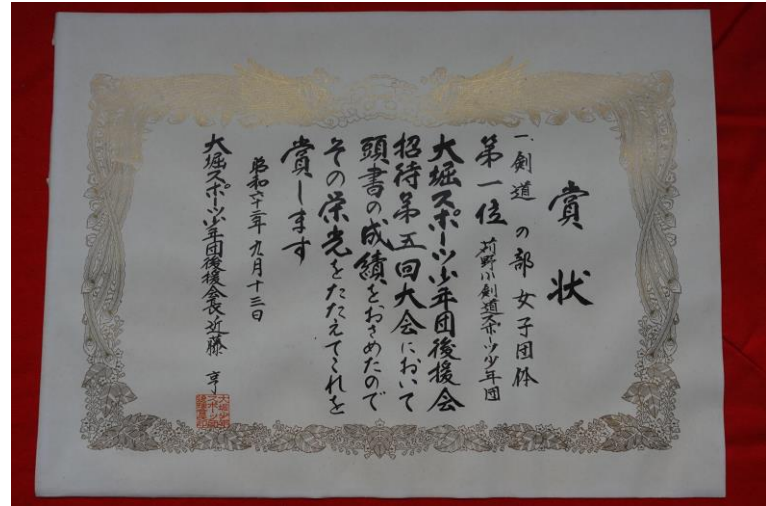 賞状
一、剣道の部女子団体
第一位 苅野小剣道スポーツ少年団
大堀スポーツ少年団後援会
招待第五回大会において
頭書の成績をおさめたので
その栄光をたたえてこれを
賞します
昭和六十二年九月十三日
大堀スポーツ少年団後援会長近藤 亨